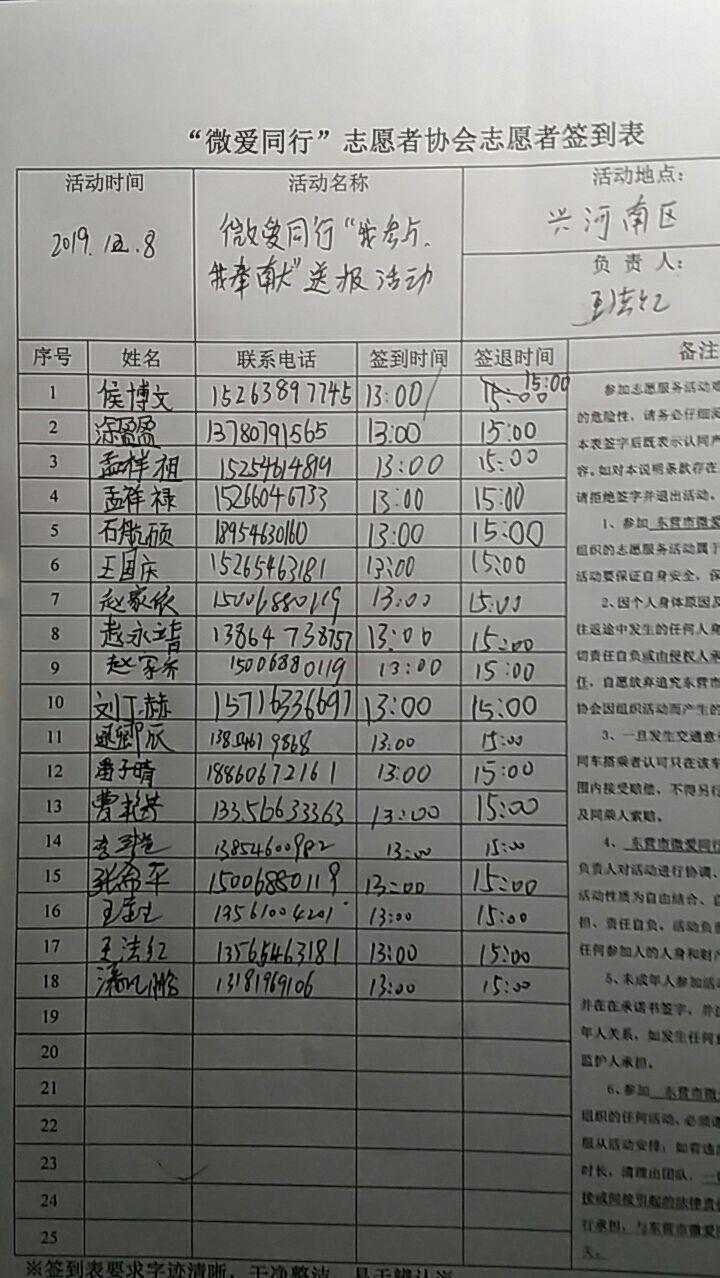 “微爱同行”志愿者协会志愿者签到表
活动时间 活动名称 活动地点:
2019.12.8 微爱同行“我参与、 兴河南区
我奉献”送报活动 负责人:
王法红
序号 姓名 联系电话 签到时间 签退时间 备注
1 侯博文 15263897745 13:00 15:00 15:00
2 涂盈盈 13780791565 13:00 15:00
3 孟祥祖 15254614819 13:00 15:00
4 孟祥禄 15266046733 13:00 15:00
5 石 硕 18954630160 13:00 15:00
6 王国庆 15265463181 13:00 15:00
7 赵家依 15006880119 13:00 15:00
8 赵永靖 13864738757 13:00 15:00
9 赵家乔 15006880119 13:00 15:00
10 刘丁赫 15716336697 13:00 15:00
11 13:00 15:00
12 潘子晴 18860672161 13:00 15:00
13 曹艳芳 13356633363 13:00 15:00
14 李 13854600982 13:00 15:00
15 张希平 15006880119 13:00 15:00
16 王 13561004201 13:00 15:00
17 王法红 13565463181 13:00 15:00
18 13181969106 13:00 15:00
19
20
21
22
23
24
25
参加志愿服务活动难
的危险性，请务必仔细阅
本表签字后既表示认同
容。如对本说明条款存在
请拒绝签字并退出活动。
1、参加 东营市微爱
组织的志愿服务活动属于
活动要保证自身安全，保
2、因个人身体原因及
往返途中发生的任何人身
切责任自负或由侵权人承
任，自愿放弃追究东营市
协会因组织活动而产生的
3、一旦发生交通意
同车搭乘者认可只在该车
围内接受赔偿，不得另行
及同乘人索赔。
4、东营市微爱同行
负责人对活动进行协调、
活动性质为自由结合、自
担、责任自负。活动负责
任何参加人的人身和财产
5、未成年人参加活动
并在在承诺书签字，并
年人关系，如发生任何
监护人承担。
6、参加 东营市微
组织的任何活动、必须
服从活动安排；如有违
时长，清理出团队，一
接或间接引起的法律责
行承担，与东营市微爱
关。
※签到表要求字迹清晰，干净整洁，易于辨认※